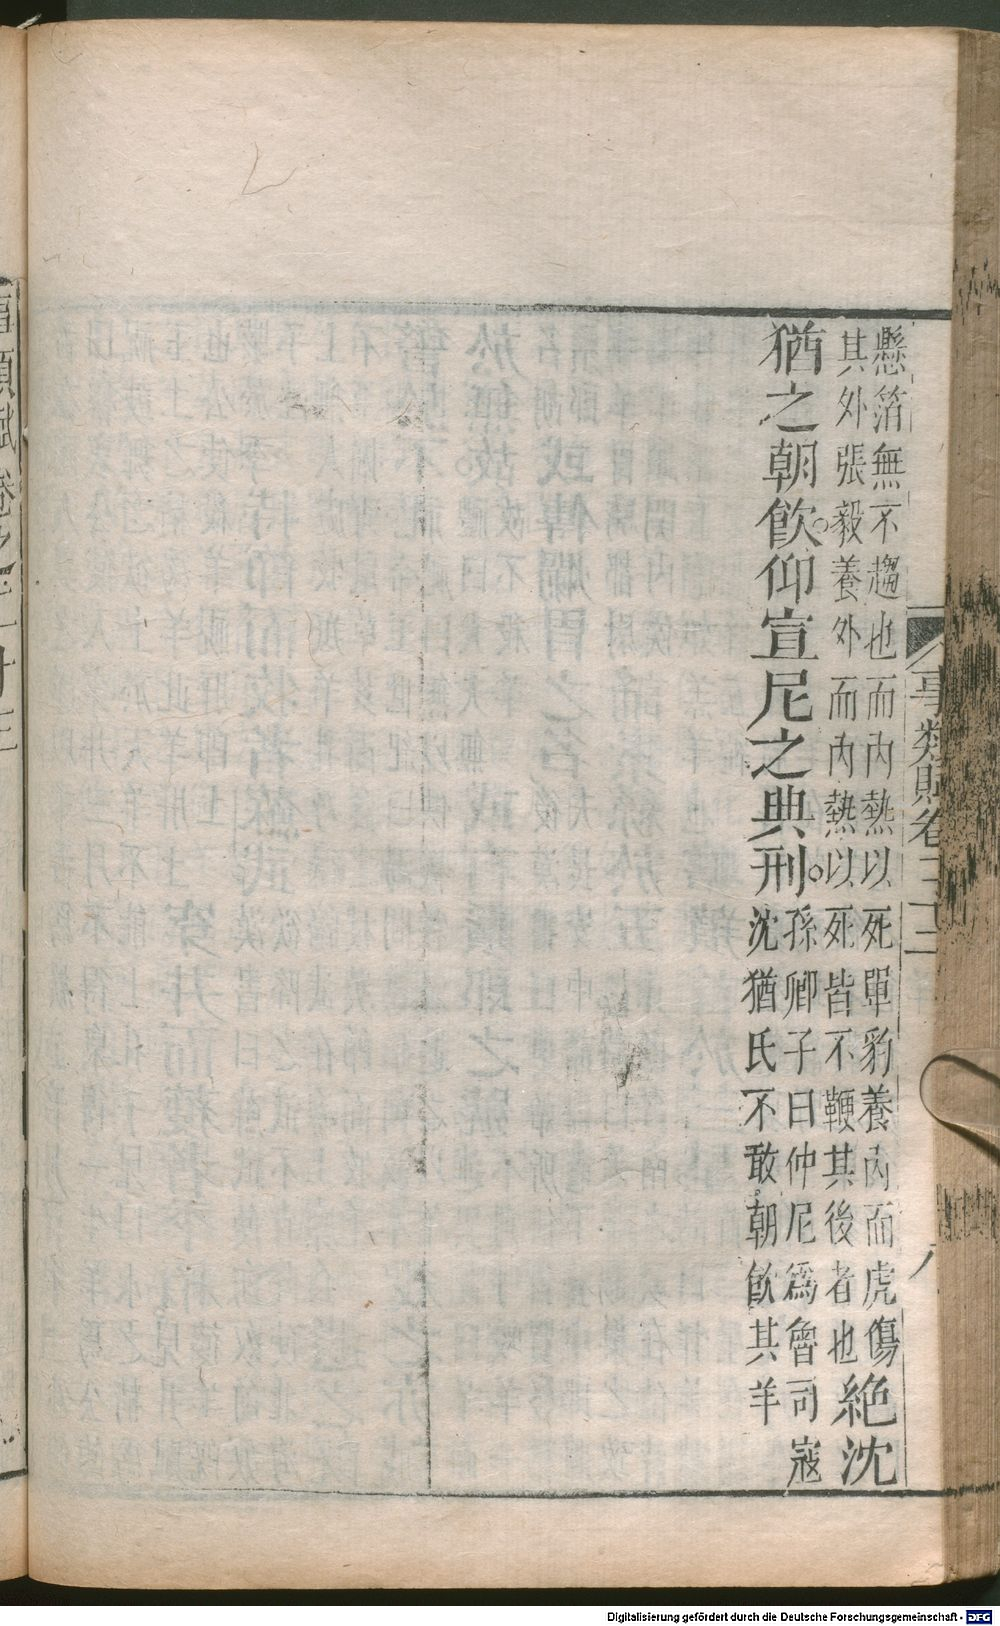 事類賦卷二十二
八
懸箔無不趨也而內熱以死單豹養內而虎傷
其外張毅養外而內熱以死皆不鞭其後者也
絶沈
猶之朝飲。仰宣尼之典刑。
孫卿子曰仲尼爲魯司寇
沈猶氏不敢朝飲其羊
類賦卷之二十三
Digitalisierung gefördert durch die Deutsche Forschungsgemeinschaft - DFG